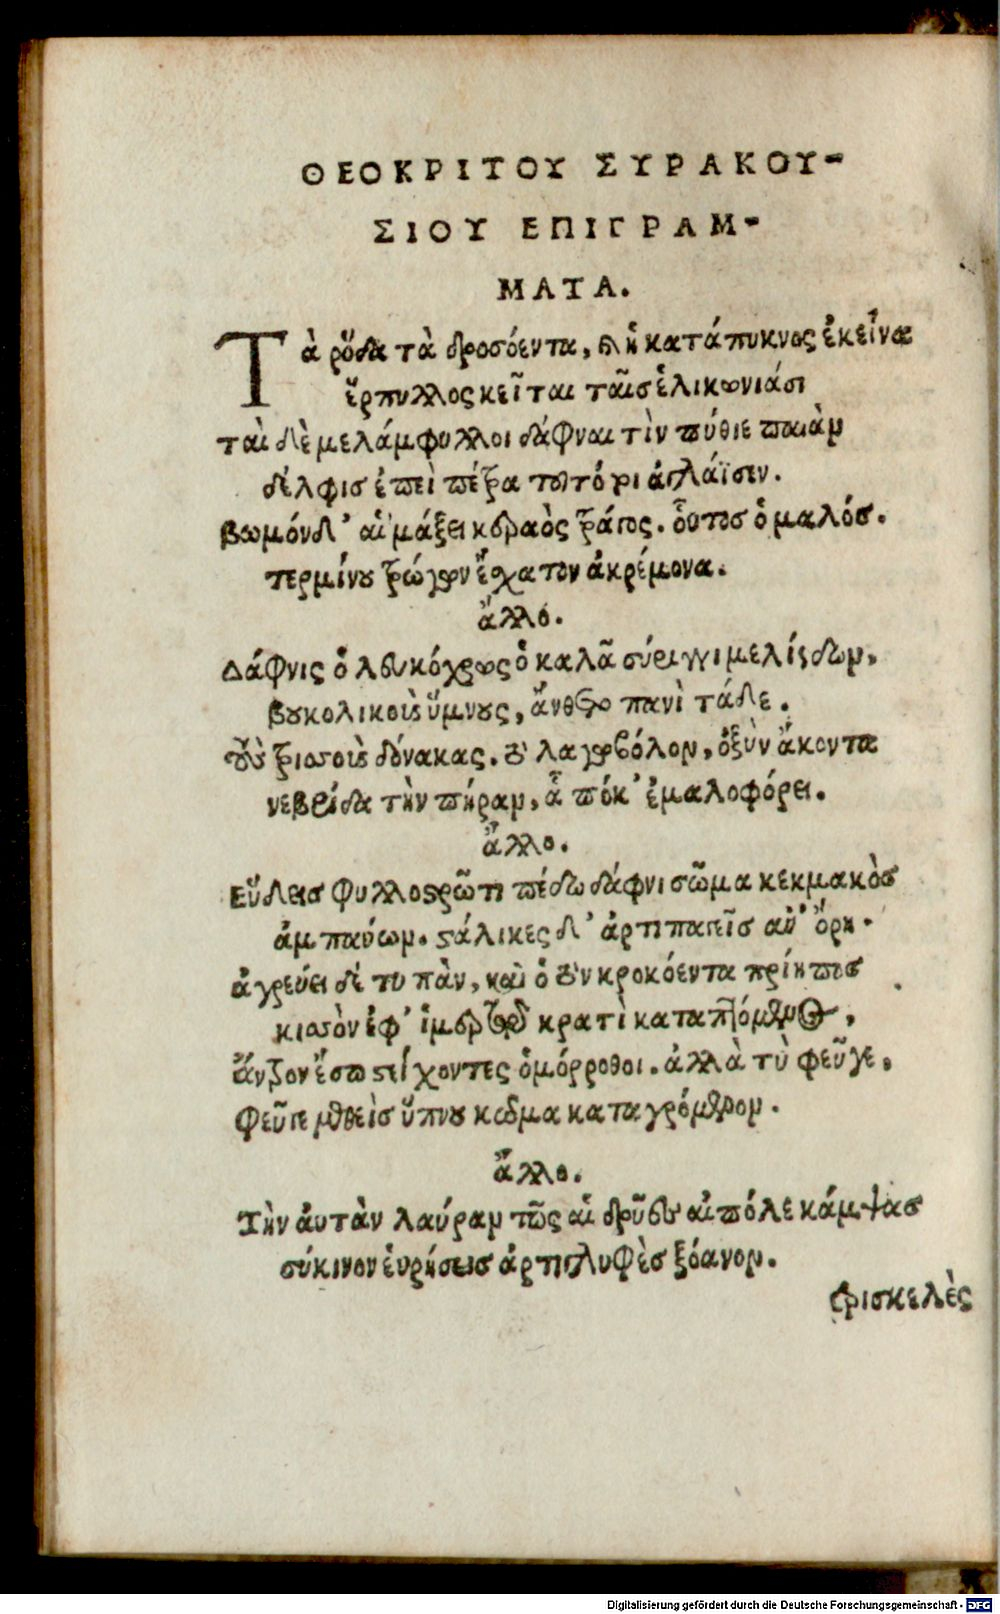 ΘΕΟΚΡΙΤΟΥ ΣΥΡΑΚΟΥ-
ΣΙΟΥ ΕΠΙΓΡΑΜ-
ΜΑΤΑ.
Τὰ ῥόδα τὰ δροσόεντα, καὶ ἡ κατάπυκνος ἐκεῖνα
ἕρπυλλος κεῖται ταῖς ἑλικωνιάσι
ταὶ δὲ μελάμφυλλοι δάφναι τὶν πύθιε παιὰν
δέλφις ἐπεὶ πέτρα τοῦτό οι ἀγλάϊσεν.
βωμόνδ’ αἱμάξει κεραὸς τράγος. οὗτος ὁ μαλός.
τερμίνου τρώγων ἔσχατον ἀκρέμονα.
ἄλλο.
Δάφνις ὁ λευκόχρως ὁ καλᾶ σύριγγι μελίσδων,
βουκολικοὺς ὕμνους, ἄνθετο πανὶ τάδε.
τοὺς τρισσοὺς δόνακας. τὸ λαγωβόλον, ὀξὺν ἄκοντα
νεβρίδα τὴν πήραν, ᾇ πόκ’ ἐμαλοφόρει.
ἄλλο.
Εὕδεις φυλλοστρῶτι πέδω δάφνι σῶμα κεκμακὸς
ἀμπαύων. στάλικες δ’ ἀρτιπαγεῖς αὖ’ ὄρη.
ἀγρεύει δέ τυ πὰν, καὶ ὁ τὸν κροκόεντα πρίηπος
κισσὸν ἐφ’ ἱμερτῷ κρατὶ καταπτόμενος,
ἄντρον ἔσω στείχοντες ὁμόρροθοι. ἀλλὰ τὺ φεῦγε,
φεῦγε μεθεὶς ὕπνου κῶμα καταγρόμενον.
ἄλλο.
Τὴν ἀυτὰν λαύραν τῶς αἱ δρύες αἰπόλε κάμψας
σύκινον ἑυρήσεις ἀρτιγλυφὲς ξόανον.
τρισκελὲς
Digitalisierung gefördert durch die Deutsche Forschungsgemeinschaft - DFG